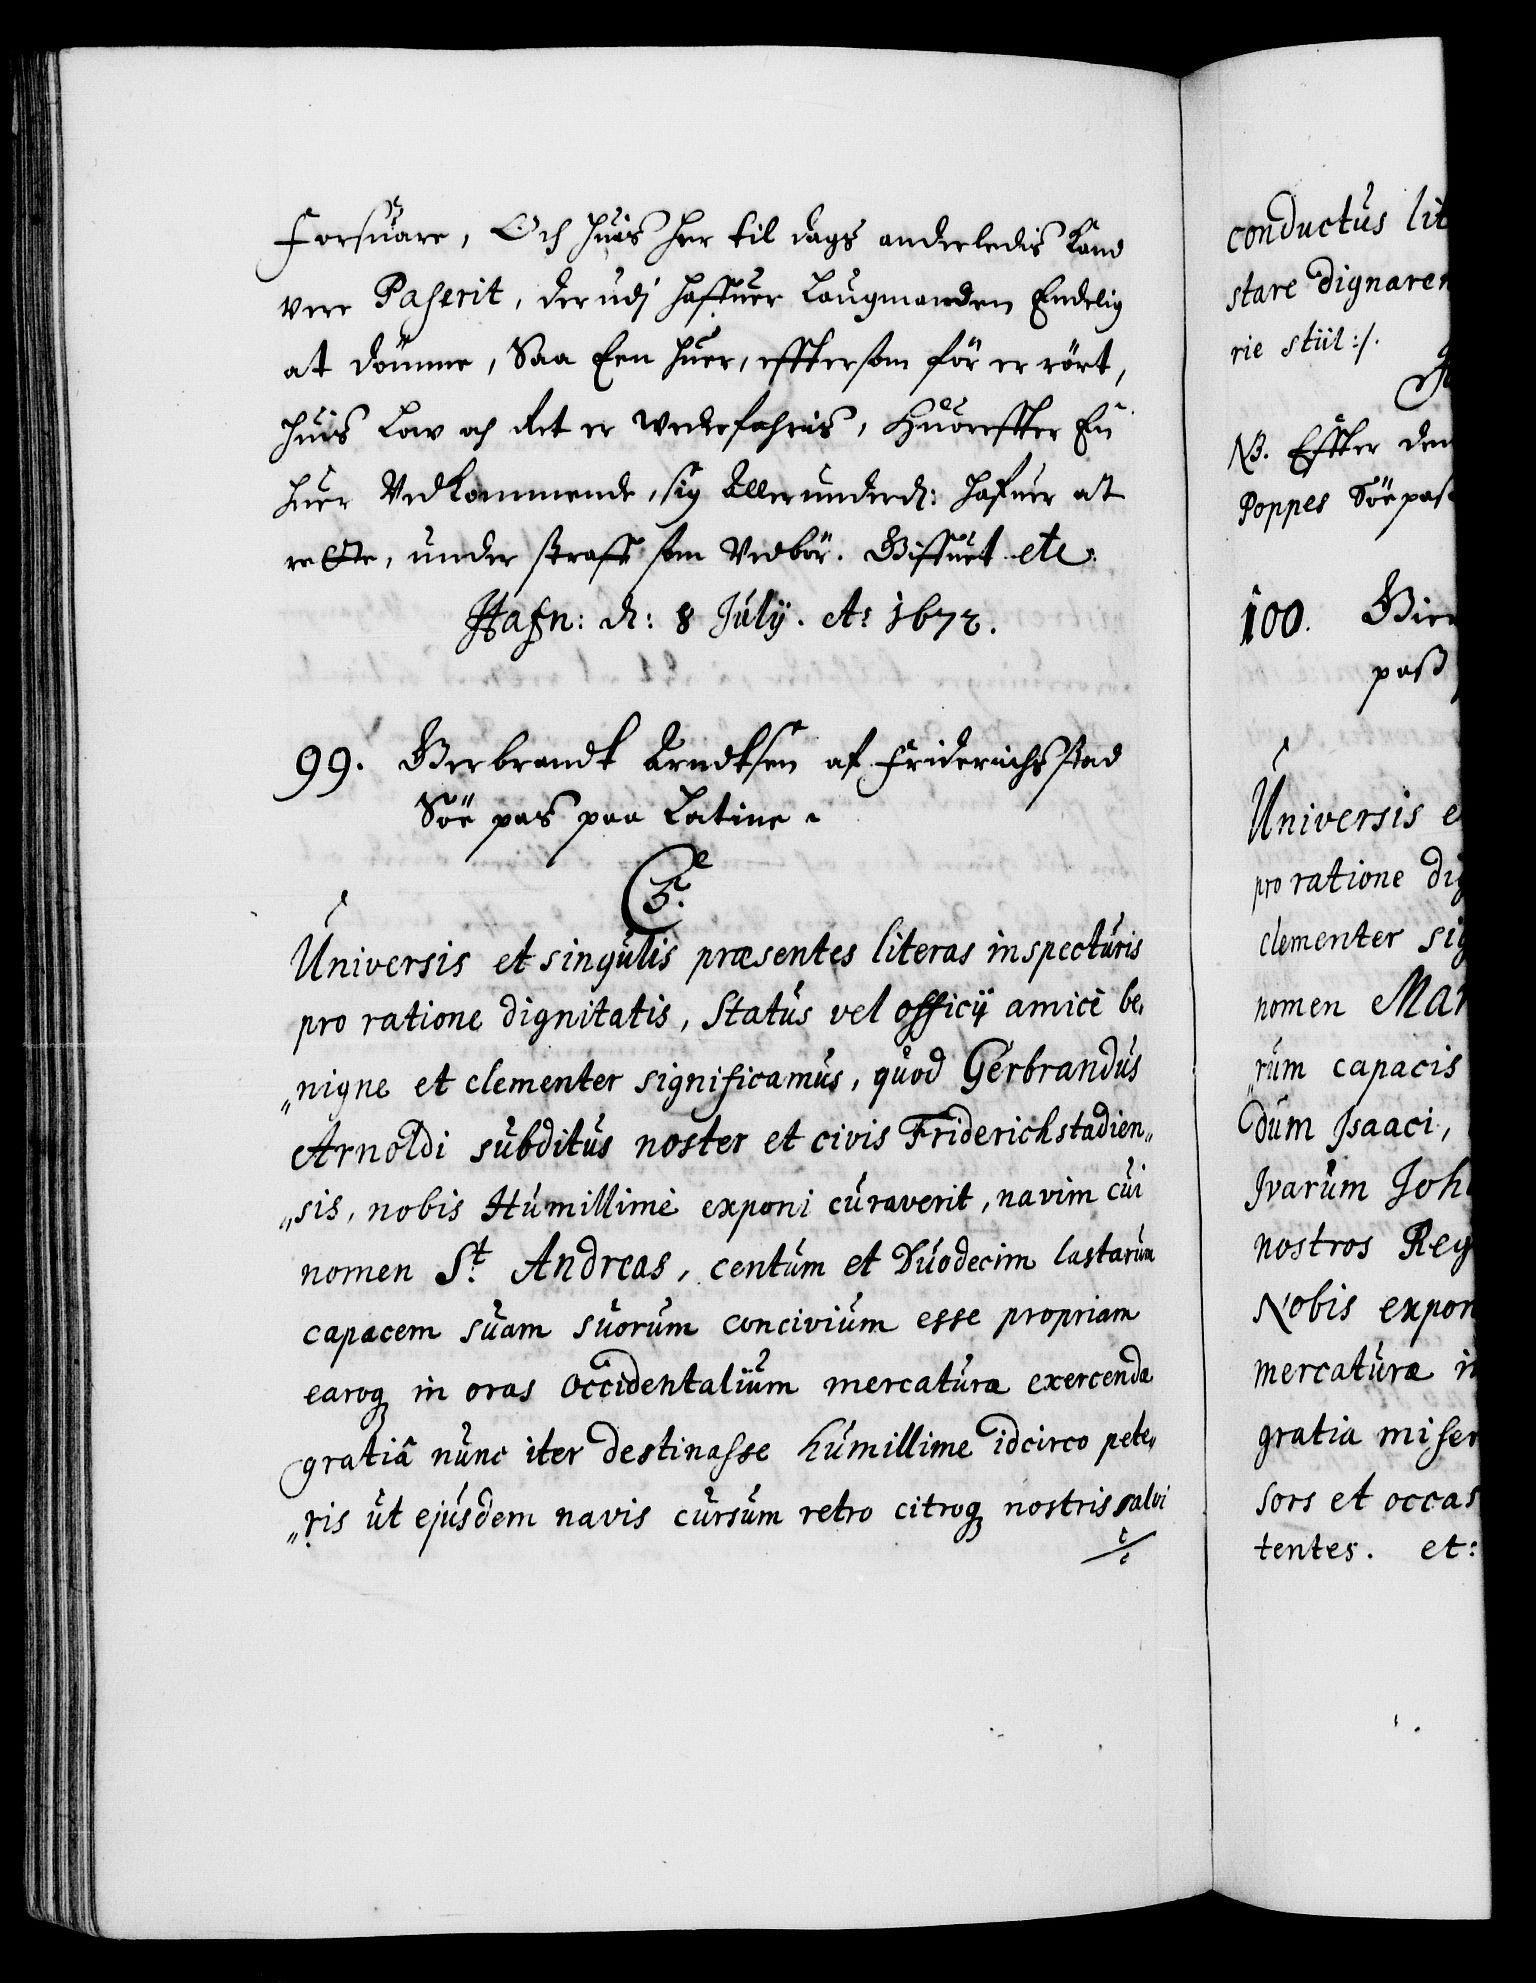 Forsuare, Och huis her til dags anderledis kand
vere Paserit, der udj haffuer Laugmanden Endelig
at dömme, Saa Een huer, effter som för er rört,
huis Low och Ret er wederfahris, Huoreffter En
huer Vedkommende, sig Allerunderd: hafuer at
rette, under straff som Vedbör. Giffuet etc:
Hafn: d: 8 Julÿ. Ao 1672.
99. Gerbrandt Arndtsen af Friderichsstad
Söe pas paa Latine.
C5.
Universis et singulis præsentes literas inspecturis
pro ratione dignitatis, Status vel officÿ amicè be,
„nigne et clementer significamus, quod Gerbrandus
Arnoldi subditus noster et civis Friderichstadien„
„sis, nobis Humillimè exponi curaverit, navim cui
nomen St. Andreas, centum et Duodecim lastarum
capacem suam suorum concivium esse propriam
earoq in oras occidentalium mercaturæ exercendæ
gratiâ nunc iter destinasse humillime idcirco pete„
„ris ut ejusdem navis cursum retro citroq nostris salvi
conductus lit
stare dignaren
rie stiil:/.
NB. Effter den
Poppes Söepas
100. Gier
pass
Universis e
pro ratione dig
clementer sig
nomen Mar
„rum capacis
dum Isaaci,
Ivarum Joh
nostros Reg
Nobis expon
mercaturæ in
gratia miser
sors et occas
tentes. et: